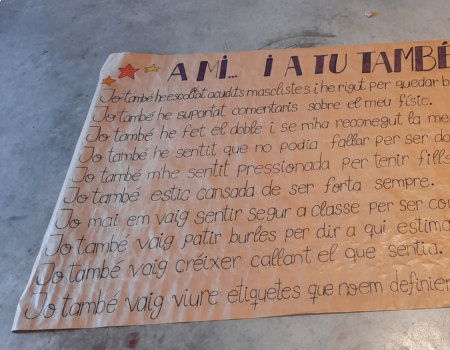 A MI... I A TU TAMBÉ
Jo també he escoltat acudits masclistes i he rigut per quedar b
Jo també he suportat comentaris sobre el meu físic.
Jo també he fet el doble i se m'ha reconegut la me
Jo també he sentit que no podia fallar per ser do
Jo també m'he sentit pressionada per tenir fills
Jo també estic cansada de ser forta sempre.
Jo mai em vaig sentir segur a classe per ser co
Jo també vaig patir burles per dir a qui estima
Jo també vaig créixer callant el que sentia.
Jo també vaig viure etiquetes que no em definien